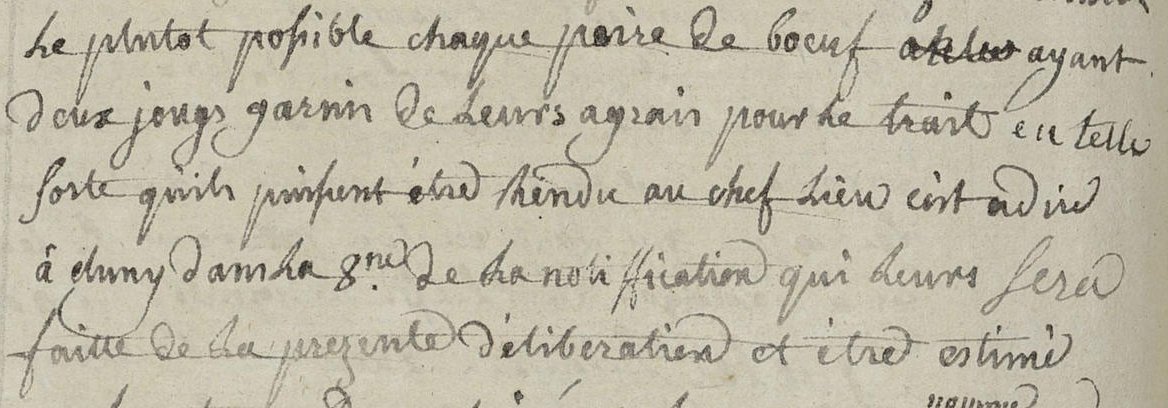 le plutot possible chaque paire de boeuf ayant
deux jougs garnis de leurs agrais pour le trait en telle
sorte qu'ils puissent être rendu au chef lieu c'est a dire
à cluny dans la 8.ne de la notiffication qui leurs sera
faitte de la prezente déliberation et être estimé